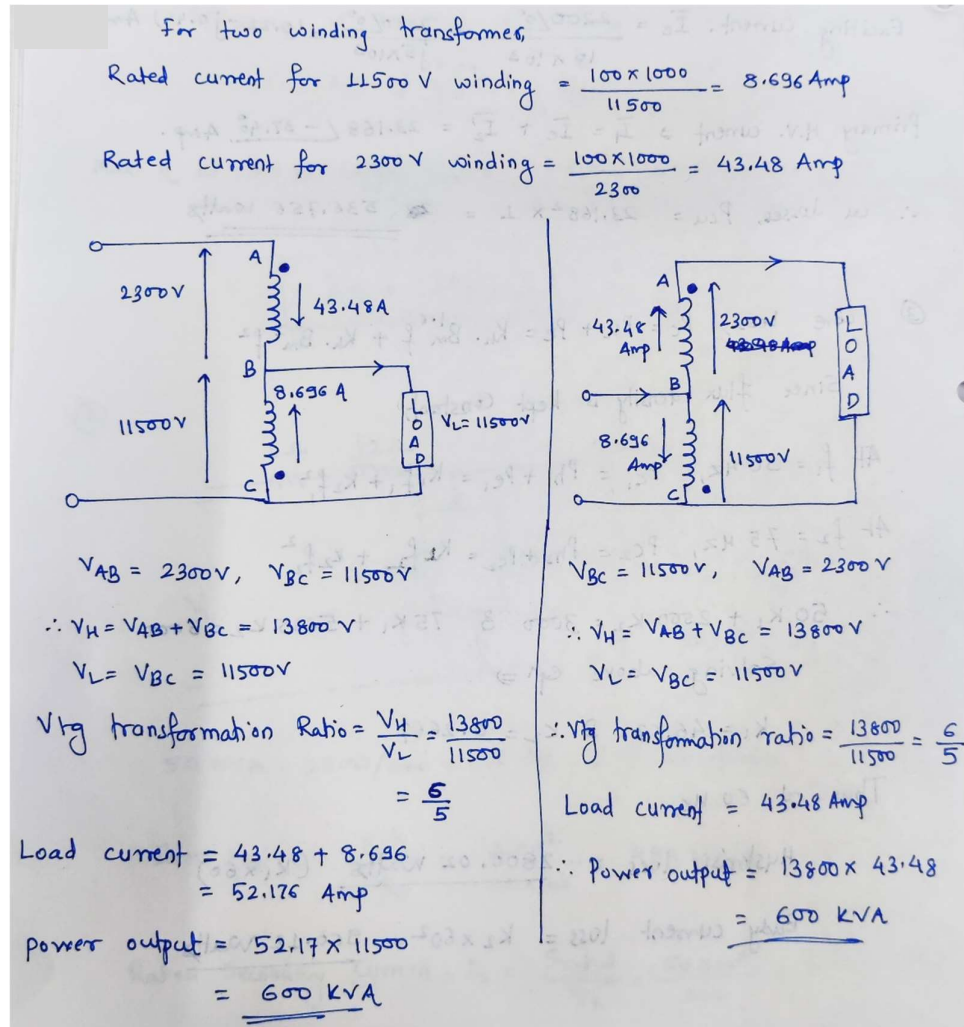 for two winding transformer,
Rated current for 11500 V winding = 100 x 1000 / 11500 = 8.696 Amp
Rated current for 2300 V winding = 100 X 1000 / 2300 = 43.48 Amp
A
2300 V
43.48 A
B
8.696 A
11500 V
LOAD
VL = 11500 V
C
VAB = 2300 V, VBC = 11500 V
∴ VH = VAB + VBC = 13800 V
VL = VBC = 11500 V
Vtg transformation Ratio = VH / VL = 13800 / 11500
= 6/5
Load current = 43.48 + 8.696
= 52.176 Amp
power output = 52.17 x 11500
= 600 KVA
A
43.48 Amp
2300 V
LOAD
B
8.696 Amp
11500 V
C
VBC = 11500 V, VAB = 2300 V
∴ VH = VAB + VBC = 13800 V
VL = VBC = 11500 V
∴ Vtg transformation ratio = 13800 / 11500 = 6/5
Load current = 43.48 Amp
∴ Power output = 13800 x 43.48
= 600 KVA